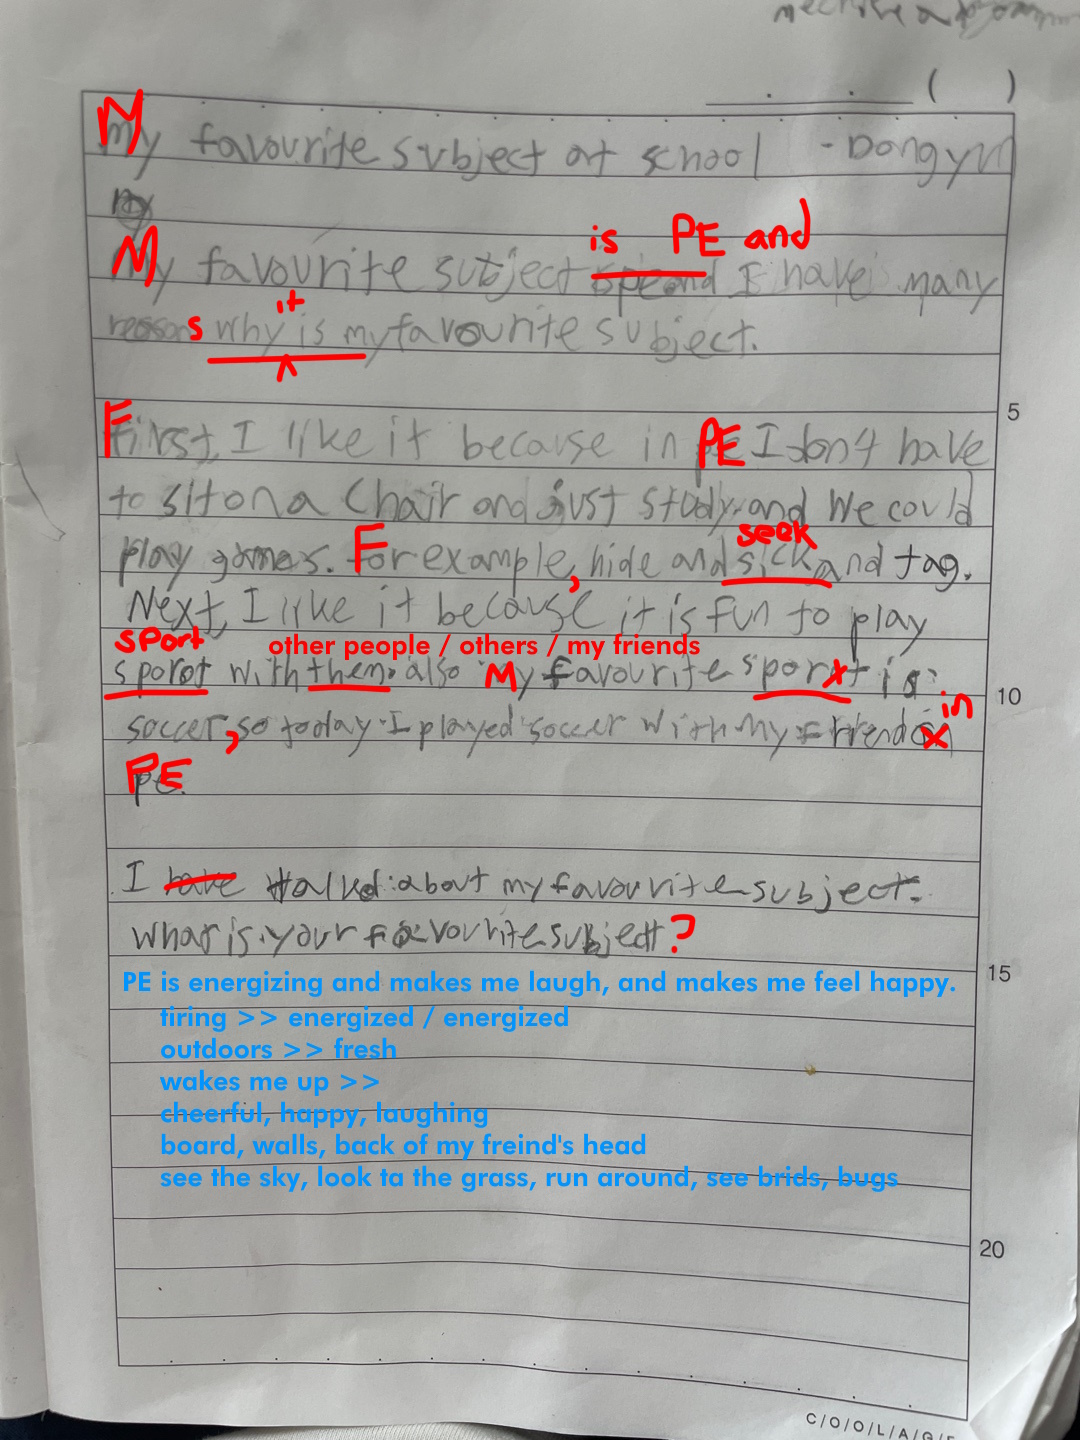 ( )
My favourite subject at school - Dongyun
my
is PE and
My favourite subject spe and I have many
it
reasons why is my favourite subject.
5
First, I like it because in PE I don't have
to sit on a chair and just study, and we could
seek
play games. For example, hide and sick and tag.
Next, I like it because it is fun to play
sport other people / others / my friends
sporot with them. also My favourite sporxt is
10
in
soccer, so today I played soccer with my friend x
PE.
I have talked about my favourite subject.
what is your favourite subject?
15
PE is energizing and makes me laugh, and makes me feel happy.
tiring >> energized / energized
outdoors >> fresh
wakes me up >>
cheerful, happy, laughing
board, walls, back of my freind's head
see the sky, look ta the grass, run around, see brids, bugs
20